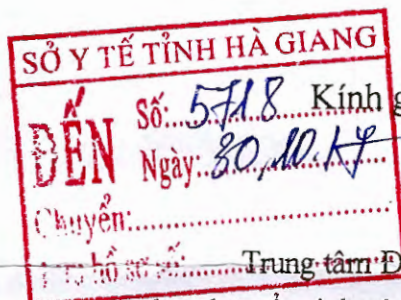 SỞ Y TẾ TỈNH HÀ GIANG
ĐẾN
Số: 5718 Kính g
Ngày: 30,10.17
Chuyển:
hồ sơ số: Trung tâm Đ